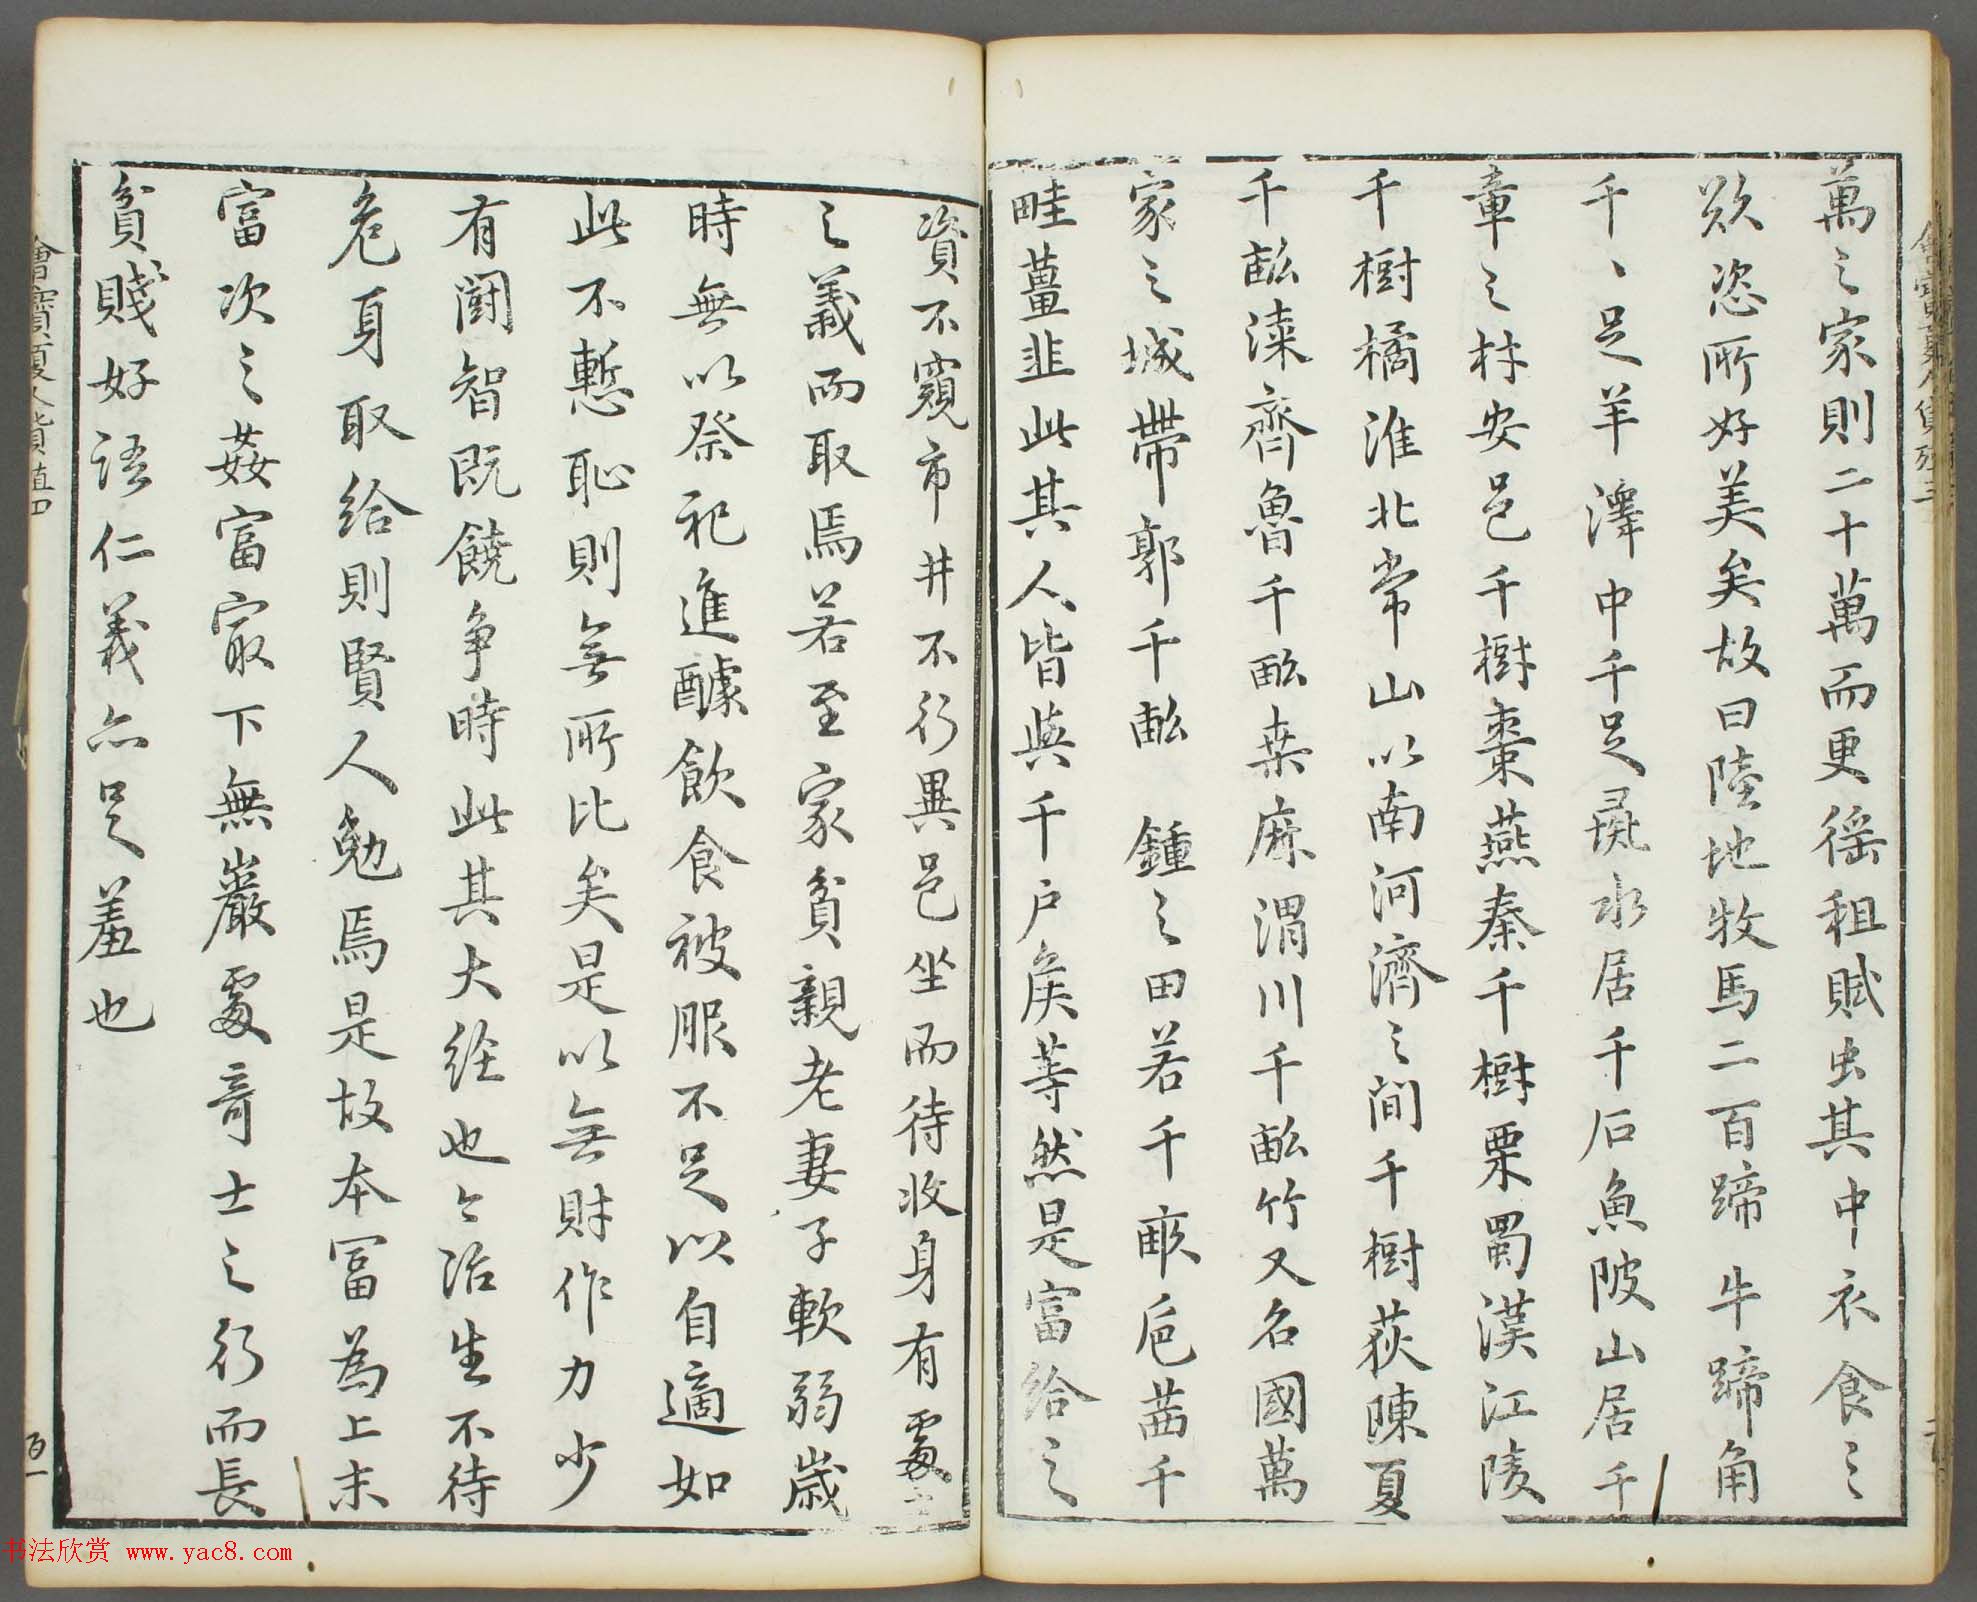 萬之家則二十萬而更徭租賦出其中衣食之
欲恣所好美矣故曰陸地牧馬二百蹄牛蹄角
千、足羊澤中千足彘水居千石魚陂山居千
章之材安邑千樹棗燕秦千樹栗蜀漢江陵
千樹橘淮北常山以南河濟之間千樹荻陳夏
千畝漆齊魯千畝桑麻渭川千畝竹又名國萬
家之城帶郭千畝鍾之田若千畝巵茜千
畦薑韭此其人皆與千戶侯等然是富給之
資不窺市井不行異邑坐而待收身有處士
之義而取焉若至家貧親老妻子軟弱歲
時無以祭祀進醵飲食被服不足以自適如
此不慙恥則無所比矣是以無財作力少
有鬪智既饒爭時此其大經也今治生不待
危身取給則賢人勉焉是故本富為上末
富次之姦富最下無巖處奇士之行而長
貧賤好語仁義亦足羞也
貨殖四
百一
书法欣赏 www.yac8.com